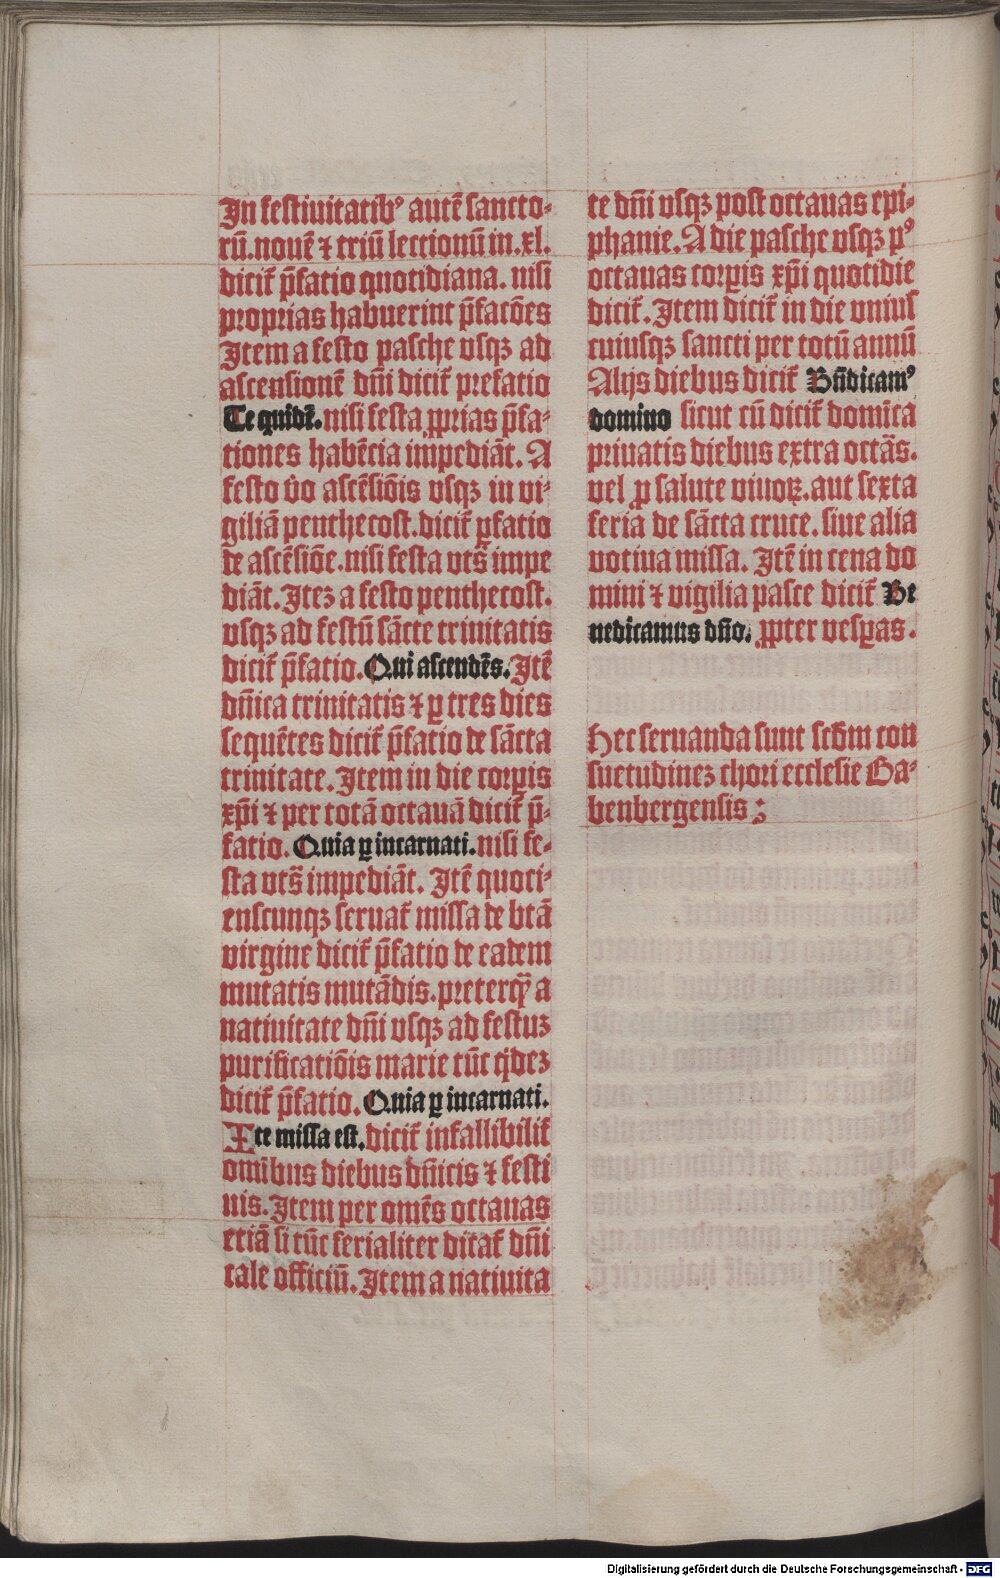 In festiuitatib⁹ autē sancto-
rū. nouē ⁊ triū leccionū in .xl.
dicit᷑ p̄fatio quotidiana. nisi
proprias habuerint p̄facōes
Item a festo pasche vsqꝫ ad
ascensionē dn̄i dicit᷑ prefatio
Te quidē. nisi festa ꝓprias p̄fa-
tiones habēcia impediāt. A
festo v̄o ascēsiōis vsqꝫ in vi-
giliā penthecost. dicit᷑ p̄fatio
de ascēsiōe. nisi festa vts̄ impe
diāt. Itez a festo penthecost.
vsqꝫ ad festū sācte trinitatis
dicit᷑ p̄fatio. Qui ascendēs. Itē
dn̄ica trinitatis ⁊ ꝑ tres dies
sequētes dicit᷑ p̄fatio de sācta
trinitate. Item in die corꝑis
xp̄i ⁊ per totā octauā dicit᷑ p̄-
fatio. Quia ꝑ incarnati. nisi fe-
sta vts̄ impediāt. Itē quoci-
enscunqꝫ seruat᷑ missa de btā
virgine dicit᷑ p̄fatio de eadem
mutatis mutādis. preterq̄ a
natiuitate dn̄i vsqꝫ ad festuz
purificatiōis marie tūc q̇dez
dicit᷑ p̄fatio. Quia ꝑ incarnati.
Ite missa est. dicit᷑ infallibilit᷑
omībus diebus dn̄icis ⁊ festi
uis. Item per omēs octauas
etiā si tūc ferialiter dicat᷑ dn̄i
tale officiū. Item a natiuita
te dn̄i vsqꝫ post octauas epi-
phanie. A die pasche vsqꝫ p⁹
octauas corꝑis xp̄i quotidie
dicit᷑. Item dicit᷑ in die vnius
cuiusqꝫ sancti per totū annū
Alijs diebus dicit᷑ Bn̄dicam⁹
domino sicut cū dicit᷑ domīca
priuatis diebus extra octās.
vel ꝓ salute viuoꝝ. aut sexta
feria de sācta cruce. siue alia
votiua missa. Itē in cena do
mini ⁊ vigilia pasce dicit᷑ Be
nedicamus dn̄o. ꝓpter vesꝑas.
Hec seruanda sunt scd̄m con
suetudinez chori ecclesie Ba-
benbergensis :
Digitalisierung gefördert durch die Deutsche Forschungsgemeinschaft - DFG